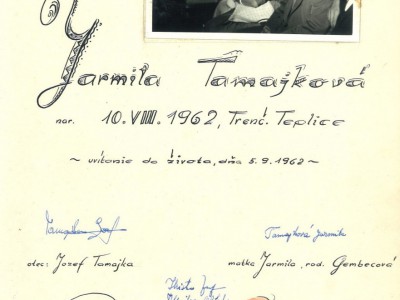 Jarmila Tamajková
nar. 10. VIII. 1962, Trenč. Teplice
~ uvítanie do života, dňa 5. 9. 1962 ~
Tamajková Jarmila
otec: Jozef Tamajka
matka Jarmila, rod. Gembecová